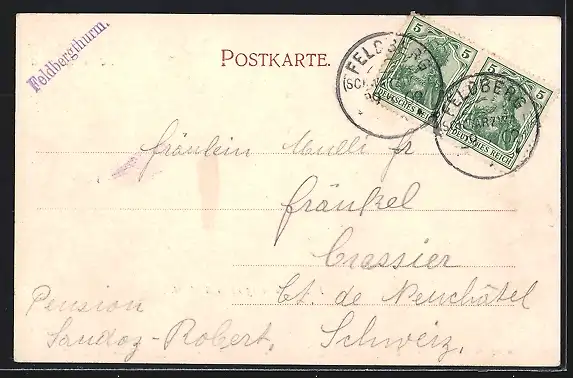 Feldbergthurm.
POSTKARTE.
5 5
DEUTSCHES REICH
5 5
DEUTSCHES REICH
FELDBERG
FELDBERG
Fräulein Mulli Fr
Fränkel
Cressier
Ct. de Neuchâtel
Schweiz.
Pension
Sandoz-Robert.